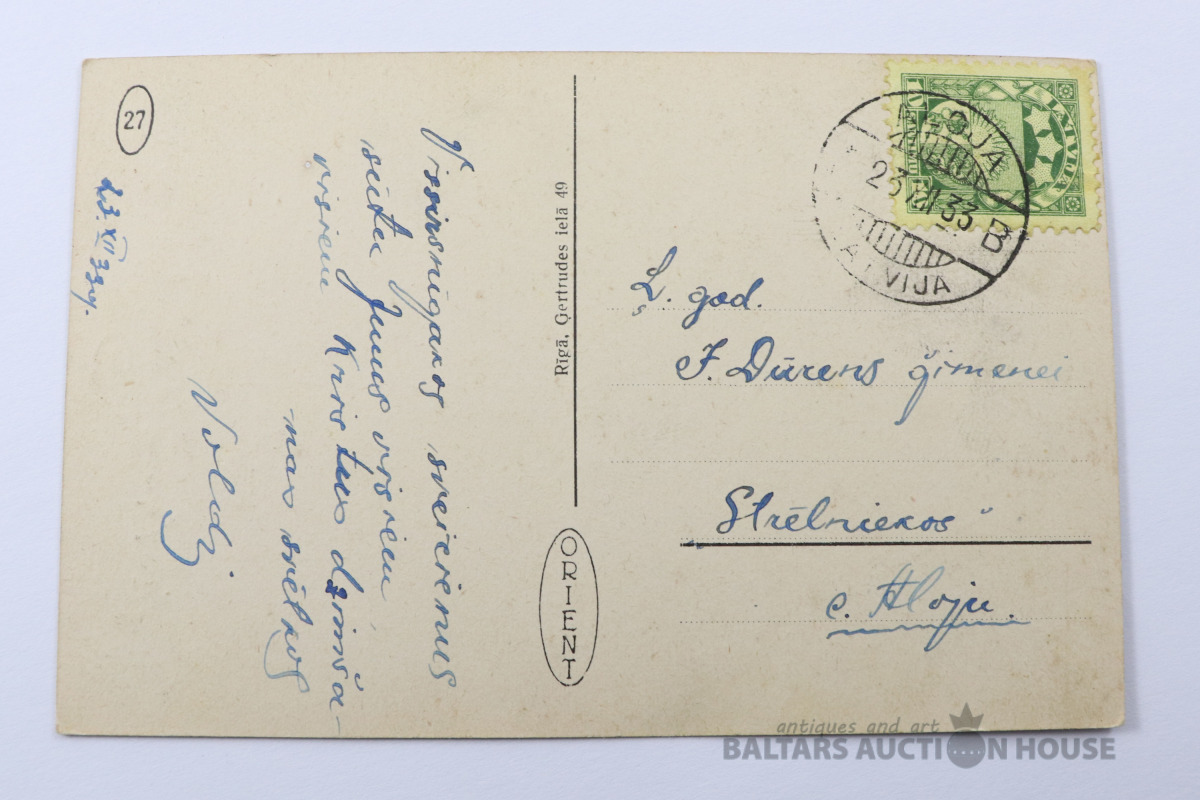 27
23. XII 33g.
Vissirsnigakos sveicienus
sūtu Jums visiem
visiem Kristus dzimša-
nas svētkos
Voldij
Rīgā, Ģertrudes ielā 49
ORIENT
LATVIJA
23 XII 33
B
LATVIJA
Ļ. god.
J. Dūrens ģimenei
Strēlniekos"
c. Aloju.
antiques and art
BALTARS AUCTION HOUSE